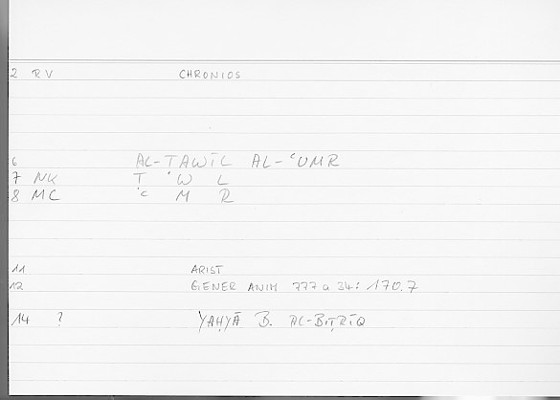 2 RV CHRONIOS
6 AL-TAWĪL AL-ʿUMR
7 NK T ʾW L
8 MC ʿC M R
11 ARIST
12 GENER ANIM 777 a 34: 170.7
14 ? YAḤYĀ B. AL-BIṬRĪQ